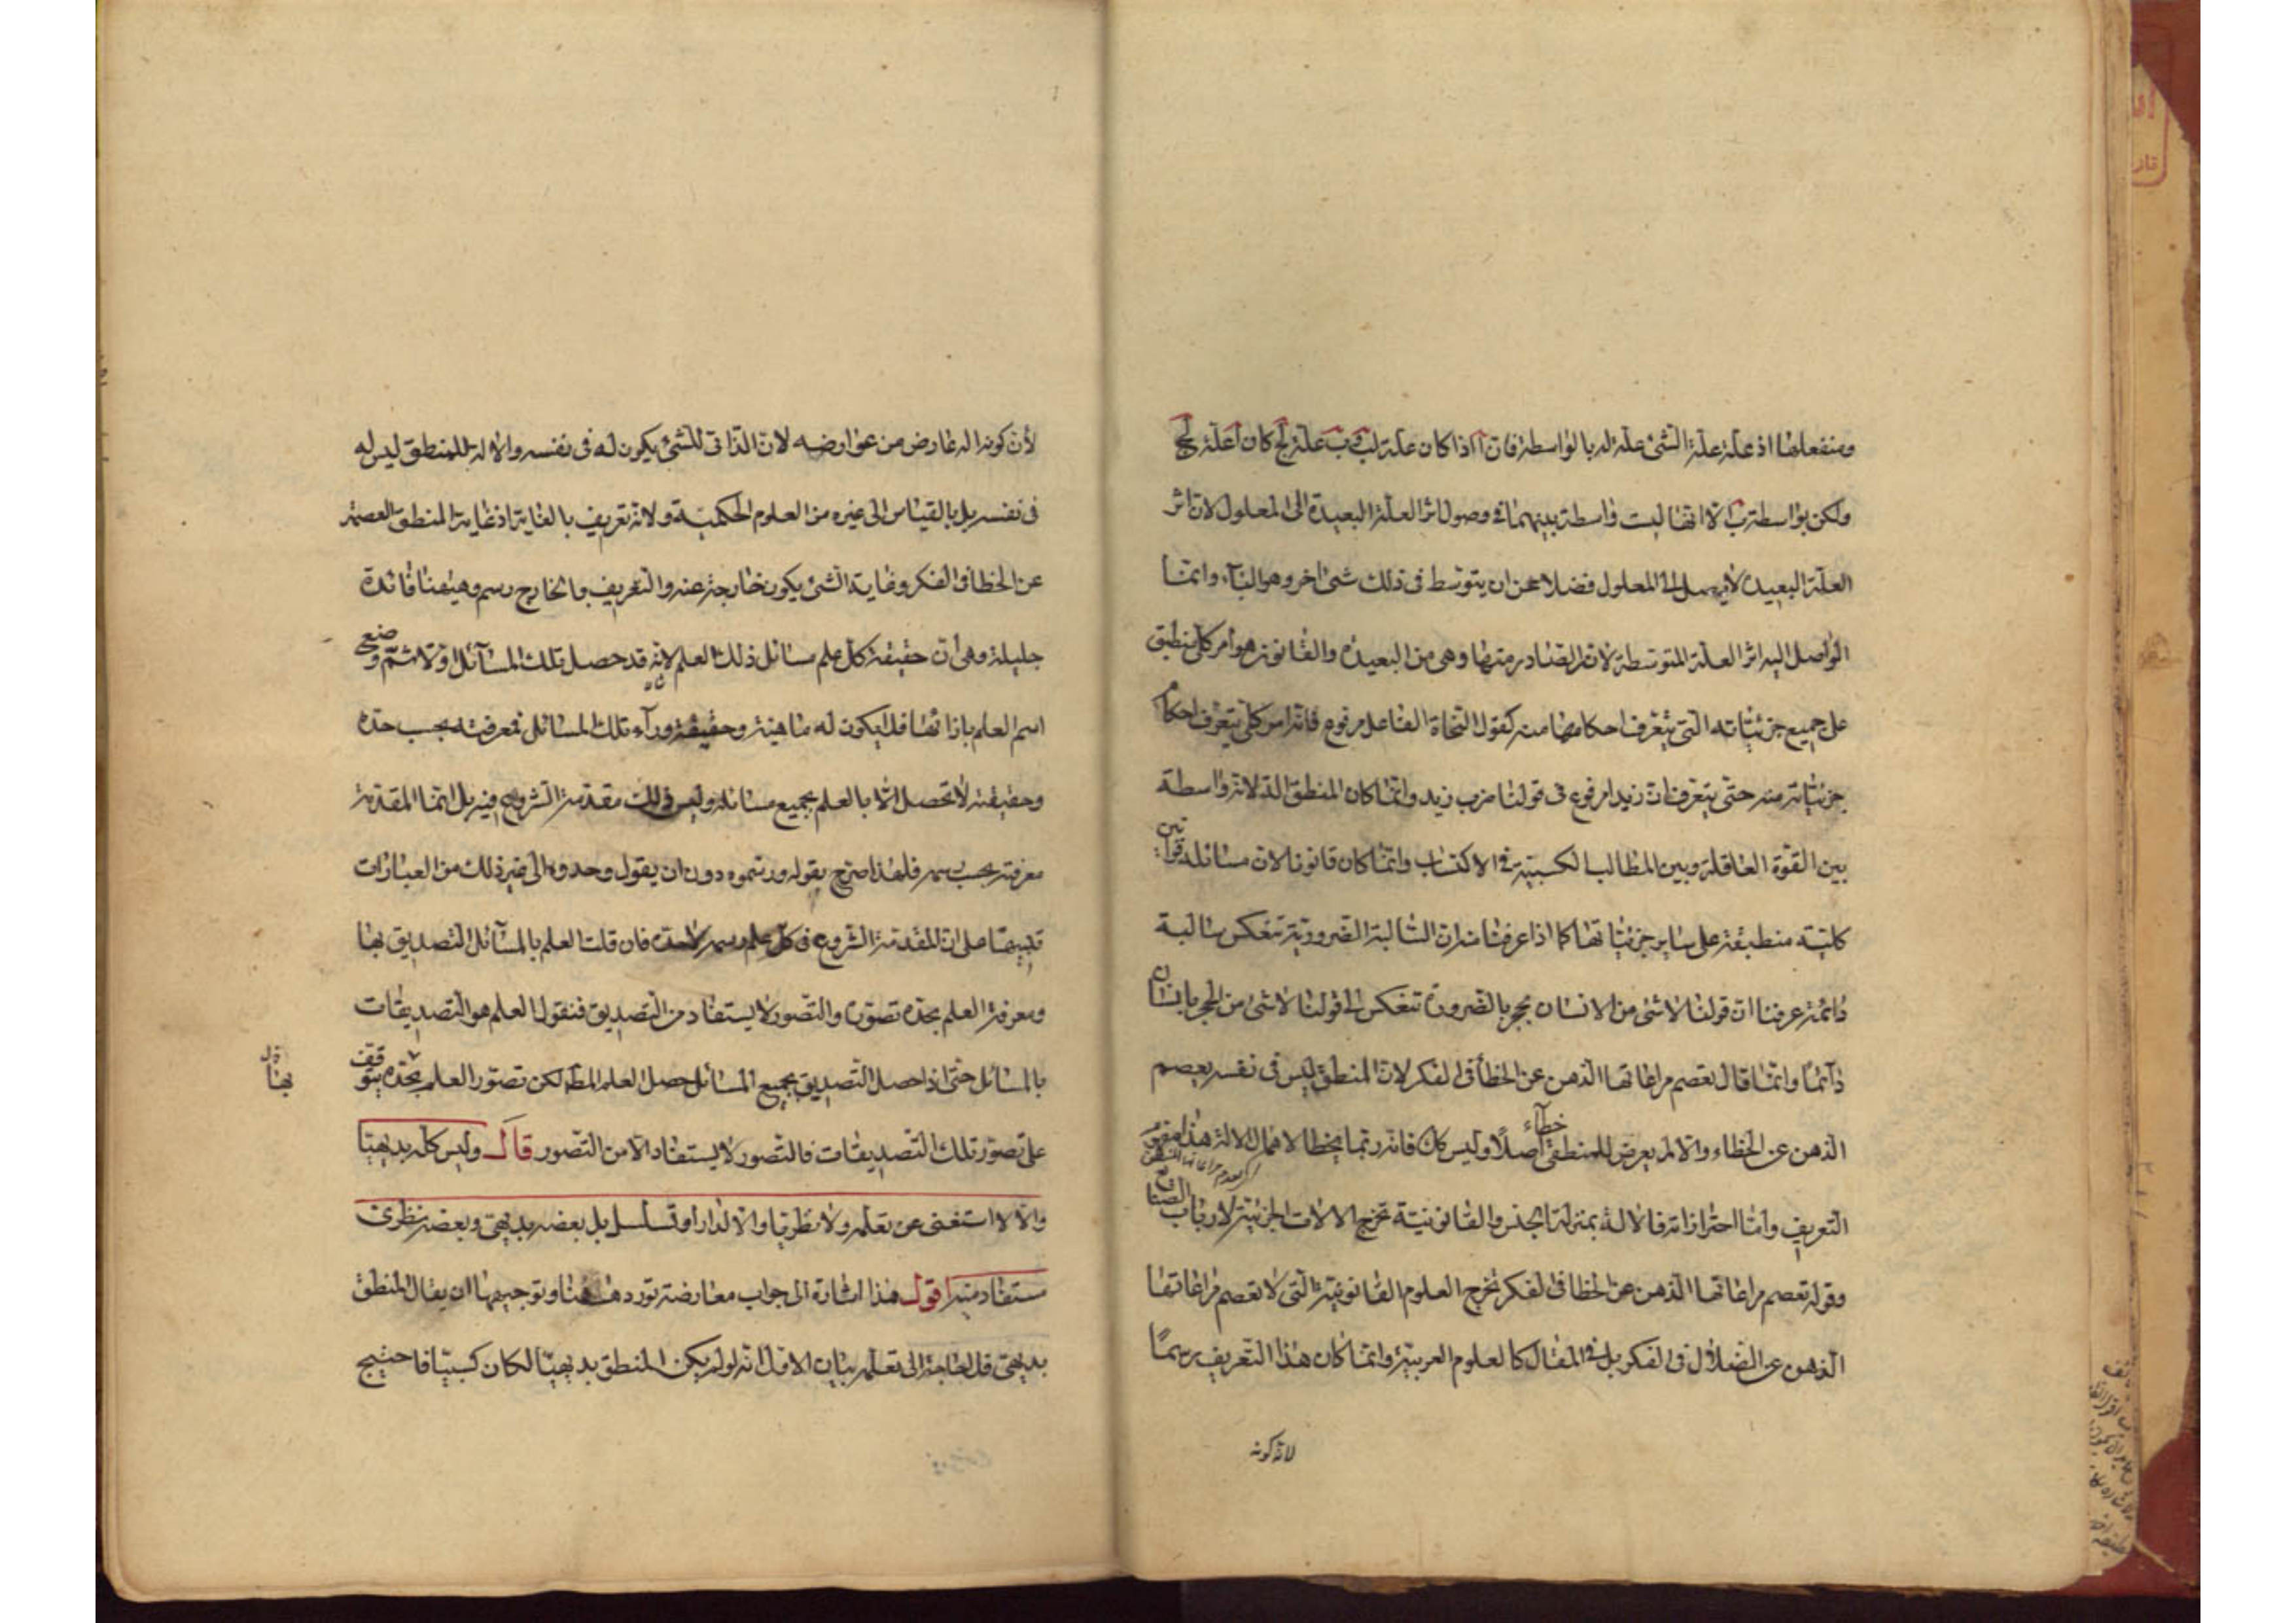 ومنفعلها اذ علة علة الشئ علة له بالواسطة فان آ اذا كان علة لب وب علة لج كان آ علة لج
ولكن بواسطة ب الا انها ليست واسطة بينهما فى وصول اثر العلة البعيدة الى المعلول لان اثر
العلة البعيدة لا يصل الى المعلول فضلا عن ان يتوسط فى ذلك شئ اخر وهو البتآء وانما
الواصل اليه اثر العلة المتوسطة لانه الصادر منها وهى من البعيدة والقانون هو امر كلى منطبق
على جميع جزئياته التى يتعرف احكامها منه كقول النحاة الفاعل مرفوع فانه امر كلى يتعرف احكام
جزئياته منه حتى يتعرف ان زيدا مرفوع فى قولنا ضرب زيد وانما كان المنطق الة لانه واسطة
بين القوة العاقلة وبين المطالب الكسبية فى الاكتساب وانما كان قانونا لان مسائله قوانين
كلية منطبقة على ساير جزئياتها كما اذا عرفنا ان السالبة الضرورية تنعكس سالبة
دائمة عرفنا ان قولنا لا شئ من الانسان بحجر بالضرورة تنعكس الى قولنا لا شئ من الحجر بانسان
دآئما وانما قال تعصم مراعاتها الذهن عن الخطأ فى الفكر لان المنطق ليس فى نفسه يعصم
الذهن عن الخطاء والا لم يعرض للمنطقى خطآء اصلا وليس كك فانه ربما يخطا لاهمال الالة هذا مفهوم
التعريف واما احترازاته فالالة بمنزلة الجنس والقانونية تخرج الالات الجزئية لارباب الصنايع
وقوله تعصم مراعاتها الذهن عن الخطا فى الفكر تخرج العلوم القانونية التى لا تعصم مراعاتها
الذهن عن الضلال فى الفكر بل فى المقال كالعلوم العربية وانما كان هذا التعريف رسما
لان كونه
لأن كونه الة عارض من عوارضه لان الذاتى للشئ يكون له فى نفسه والالة للمنطق ليس له
فى نفسه بل بالقياس الى غيره من العلوم الحكمية ولانه تعريف بالغاية اذ غاية المنطق العصمة
عن الخطأ فى الفكر وغاية الشئ يكون خارجة عنه والتعريف بالخارج رسم وهيهنا فائدة
جليلة وهى ان حقيقة كل علم مسائل ذلك العلم لانه قد حصل تلك المسآئل اولا ثم وضع
اسم العلم بازائها فلا يكون له ماهية وحقيقة ورآء تلك المسائل فمعرفته بحسب حده
وحقيقته لا تحصل الا بالعلم بجميع مسائله وليس ذلك مقدمة الشروع فيه بل انما المقدمة
معرفته بحسب رسمه فلهذا صرح بقوله ورسموه دون ان يقول وحدوه الى غير ذلك من العبارات
تنبيها على ان المقدمة الشروع فى كل علم رسمه لا حده فان قلت العلم بالمسآئل التصديق بها
ومعرفة العلم بحده تصوره والتصور لا يستفاد من التصديق فنقول العلم هو التصديقات
بالمسائل حتى اذا حصل التصديق بجميع المسائل حصل العلم المط لكن تصور العلم بحده يتوقف
بها
على تصور تلك التصديقات فالتصور لا يستفاد الا من التصور قال وليس كله بديهيا
والا لا استغنى عن تعلمه ولا نظريا والا لدار او تسلسل بل بعضه بديهى وبعضه نظرى
مستفاد منه اقول هذا اشارة الى جواب معارضة تورد ههنا وتوجيهها ان يقال المنطق
بديهى فلا حاجة الى تعلمه بيان الاول انه لو لم يكن المنطق بديهيا لكان كسبيا فاحتيج